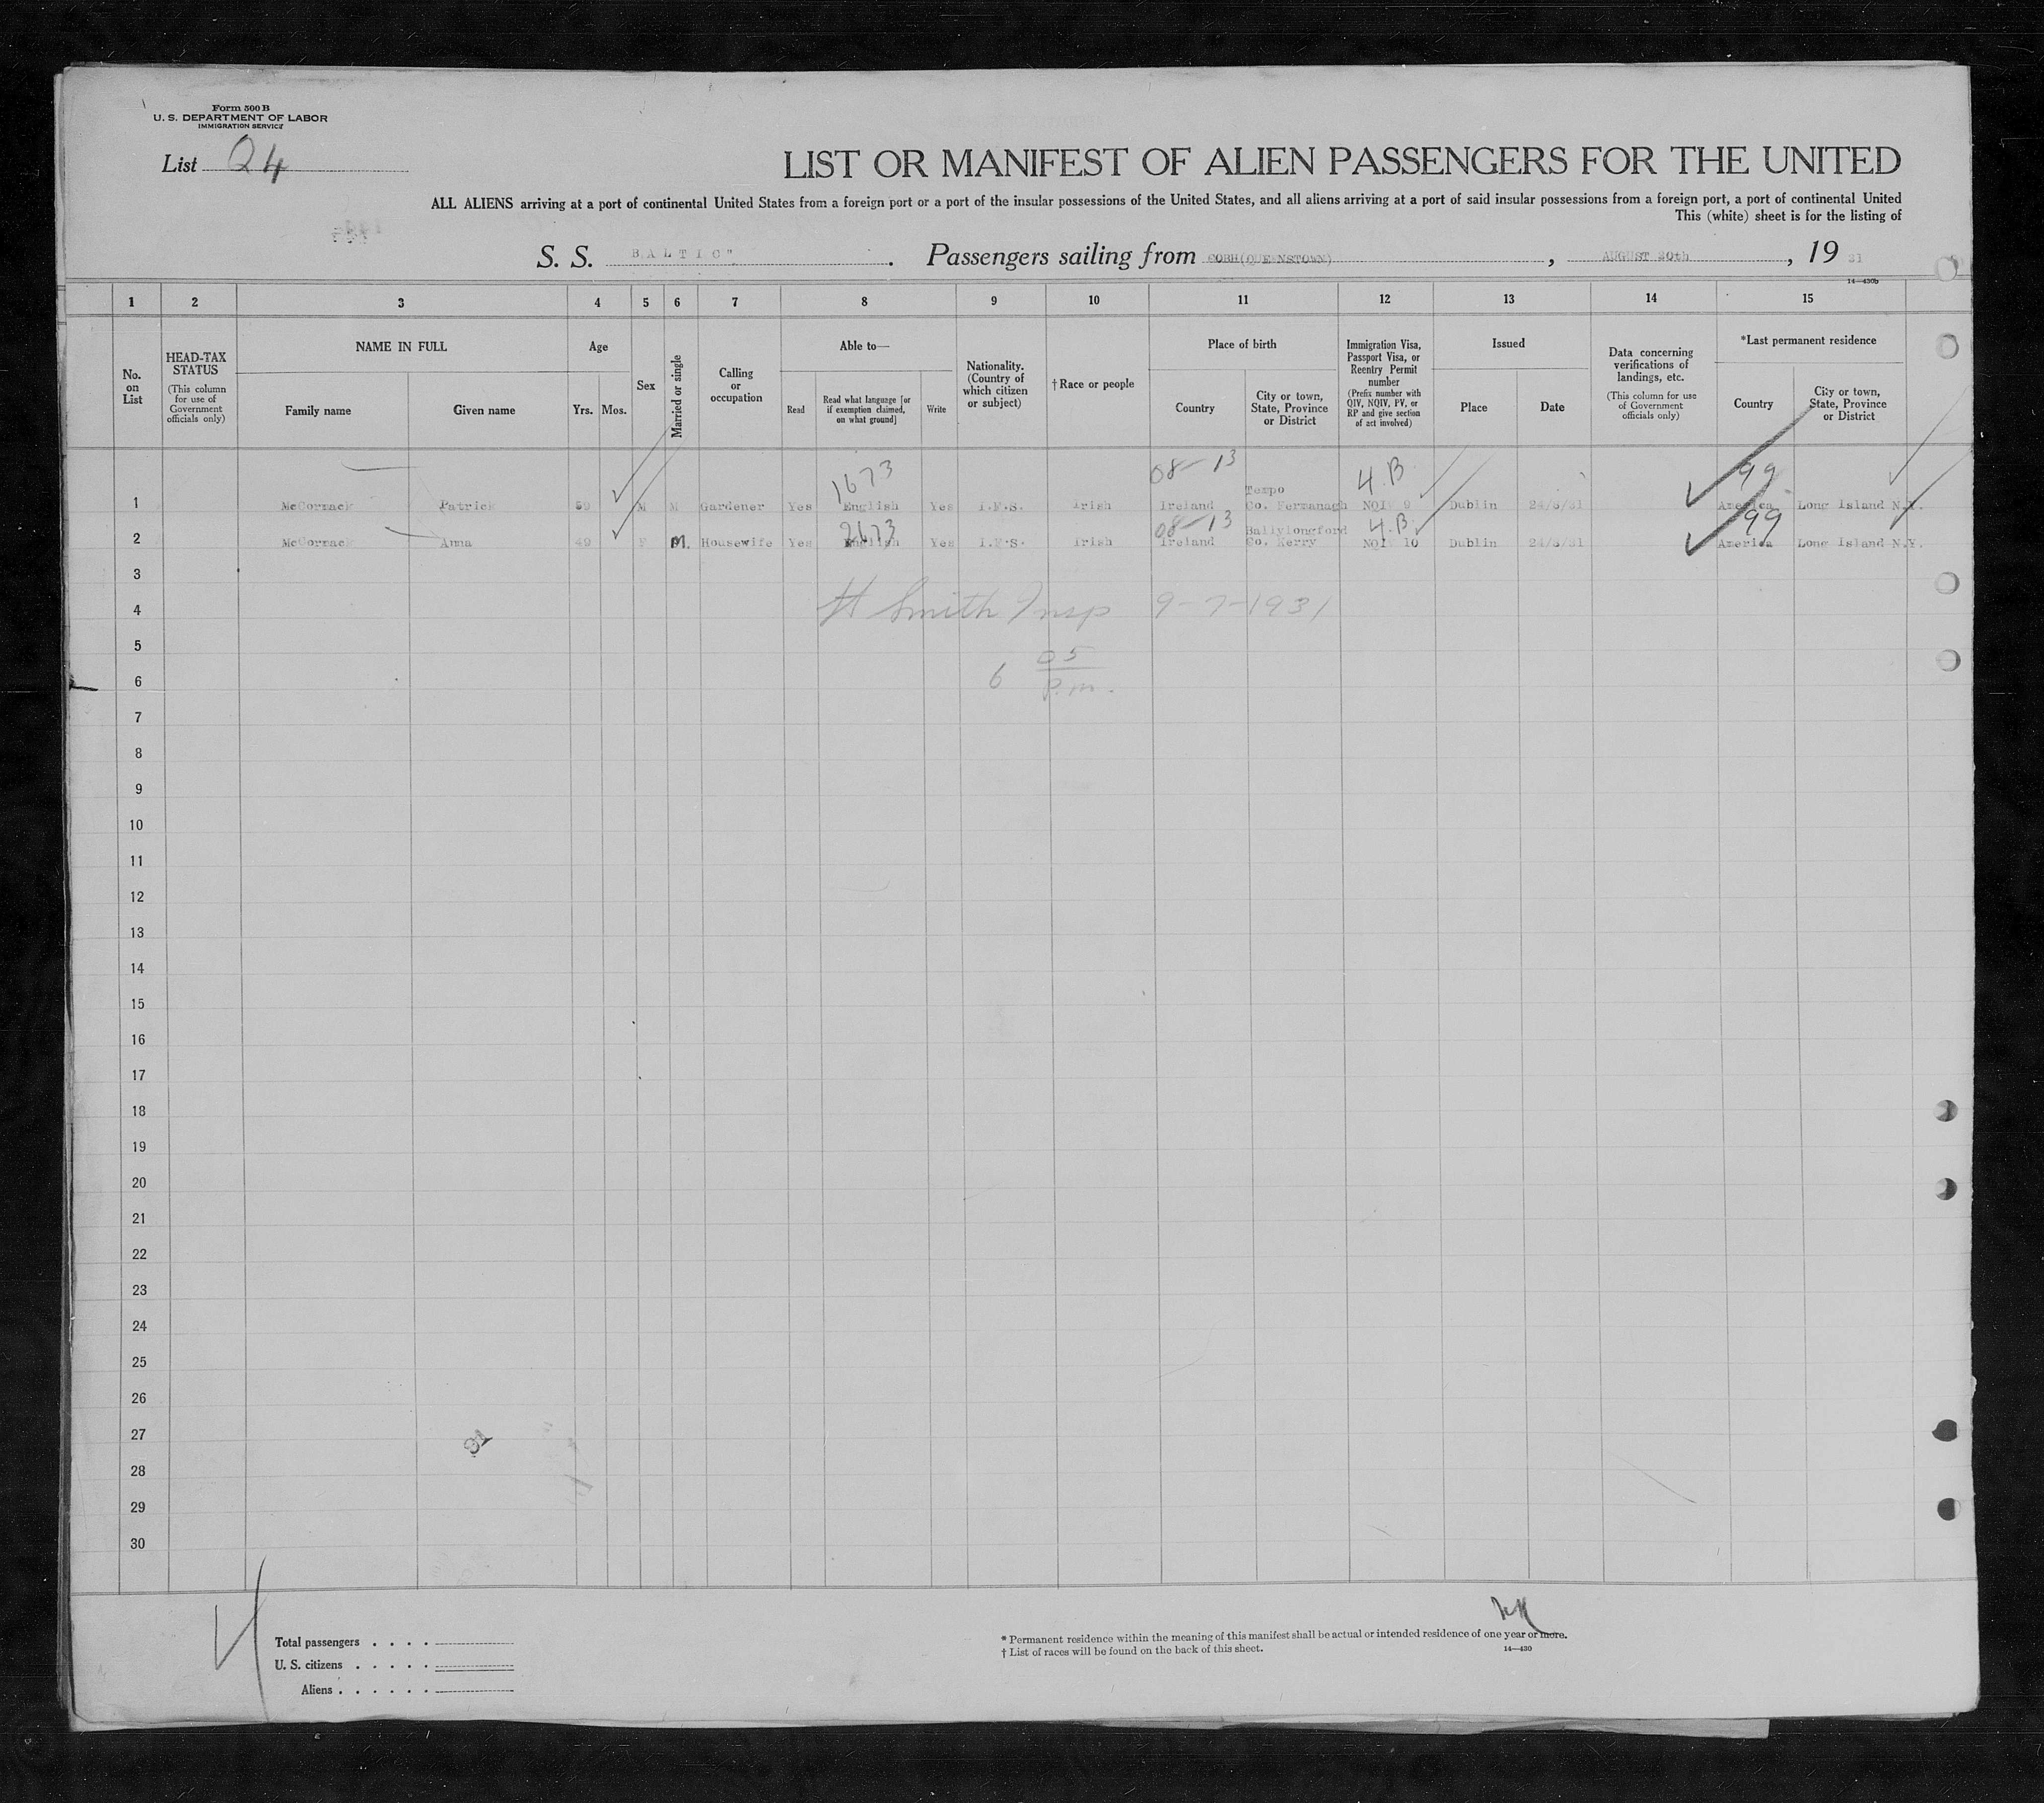 Form 500 B
U. S. DEPARTMENT OF LABOR
IMMIGRATION SERVICE
List 24
LIST OR MANIFEST OF ALIEN PASSENGERS FOR THE UNITED
ALL ALIENS arriving at a port of continental United States from a foreign port or a port of the insular possessions of the United States, and all aliens arriving at a port of said insular possessions from a foreign port, a port of continental United
This (white) sheet is for the listing of
S. S. BALTIC" . Passengers sailing from COBH(QUEENSTOWN) , AUGUST 30th , 19 31
14—430b
1 2 3 4 5 6 7 8 9 10 11 12 13 14 15
No. on List
HEAD-TAX STATUS (This column for use of Government officials only)
NAME IN FULL
Family name Given name
Age
Yrs. Mos.
Sex
Married or single
Calling or occupation
Able to—
Read Read what language [or if exemption claimed, on what ground] Write
Nationality. (Country of which citizen or subject)
†Race or people
Place of birth
Country City or town, State, Province or District
Immigration Visa, Passport Visa, or Reentry Permit number (Prefix number with QIV, NQIV, PV, or RP and give section of act involved)
Issued
Place Date
Data concerning verifications of landings, etc. (This column for use of Government officials only)
*Last permanent residence
Country City or town, State, Province or District
1673 08-13 Tempo 4 B 99
1 McCormack Patrick 59 M M Gardener Yes English Yes I.F.S. Irish Ireland Co. Fermanagh NQIV 9 Dublin 24/8/31 America Long Island N.Y.
2673 08-13 Ballylongford 4 B 99
2 McCormack Anna 49 F M. Housewife Yes English Yes I.F.S. Irish Ireland Co. Kerry NQI 10 Dublin 24/8/31 America Long Island N.Y.
3
4 H Smith Insp 9-7-1931
5
6 6 05 P.m.
7
8
9
10
11
12
13
14
15
16
17
18
19
20
21
22
23
24
25
26
27
28
29
30
Total passengers . . . .
U. S. citizens . . . . .
Aliens . . . . . .
* Permanent residence within the meaning of this manifest shall be actual or intended residence of one year or more.
† List of races will be found on the back of this sheet.
14—430